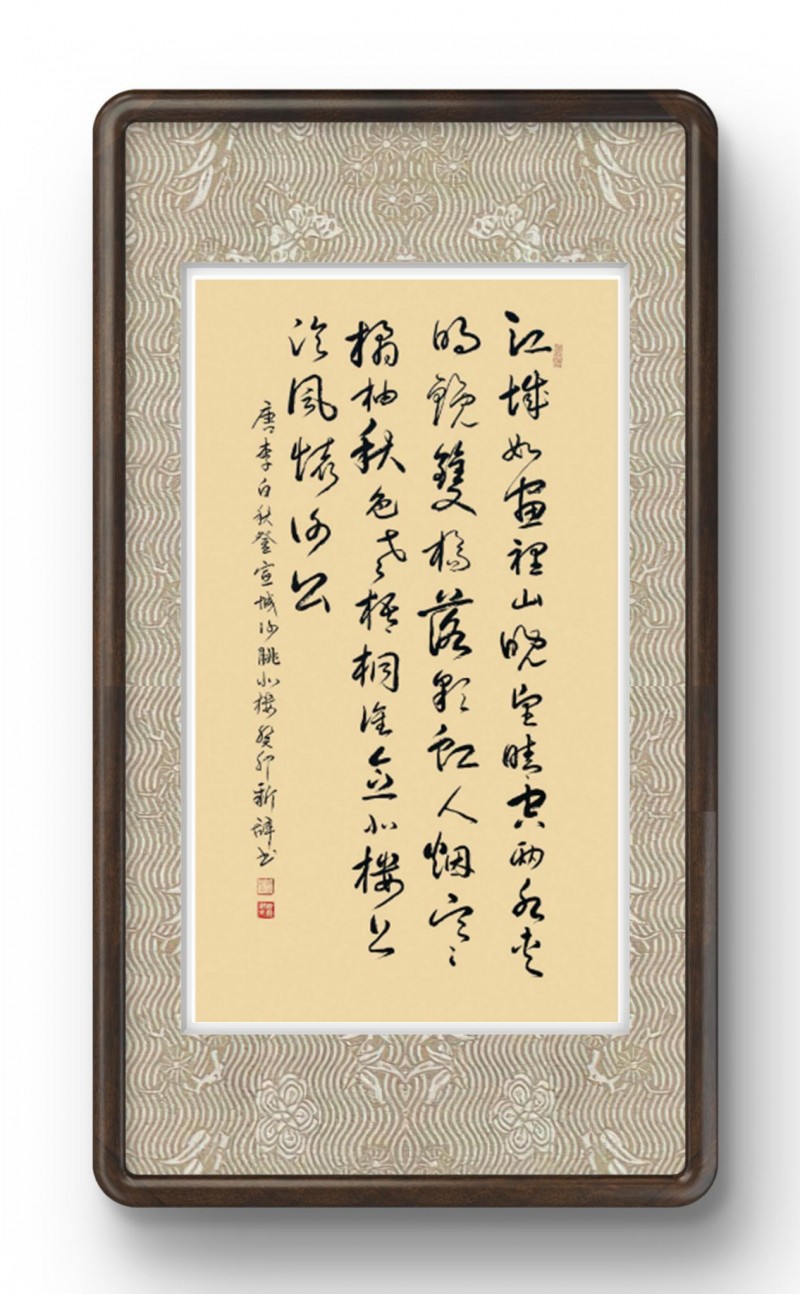 江城如畫裡山晚望晴空兩水夾
明鏡雙橋落彩虹人烟寒
橘柚秋色老梧桐誰念北樓上
臨風懷謝公
唐李白秋登宣城謝朓北樓癸卯新书